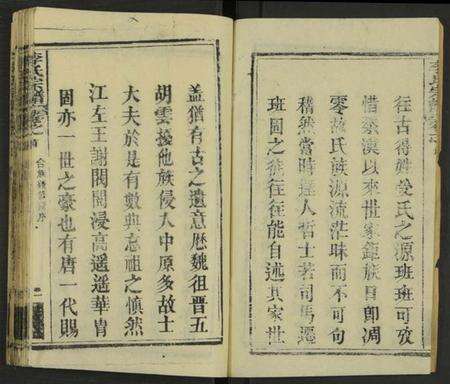 往古得姓受氏之源班班可攷
惜秦漢以來世家鉅族日卽凋
零故氏族源流茫昧而不可句
稽然當時達人哲士若司馬遷
班固之徒往往能自述其家世
蓋猶有古之遺意歷魏徂晉五
胡雲擾他族侵入中原多故士
大夫於是有數典忘祖之慎然
江左王謝閥閱浸高遥遥華胄
固亦一世之豪也有唐一代賜
李氏宗譜